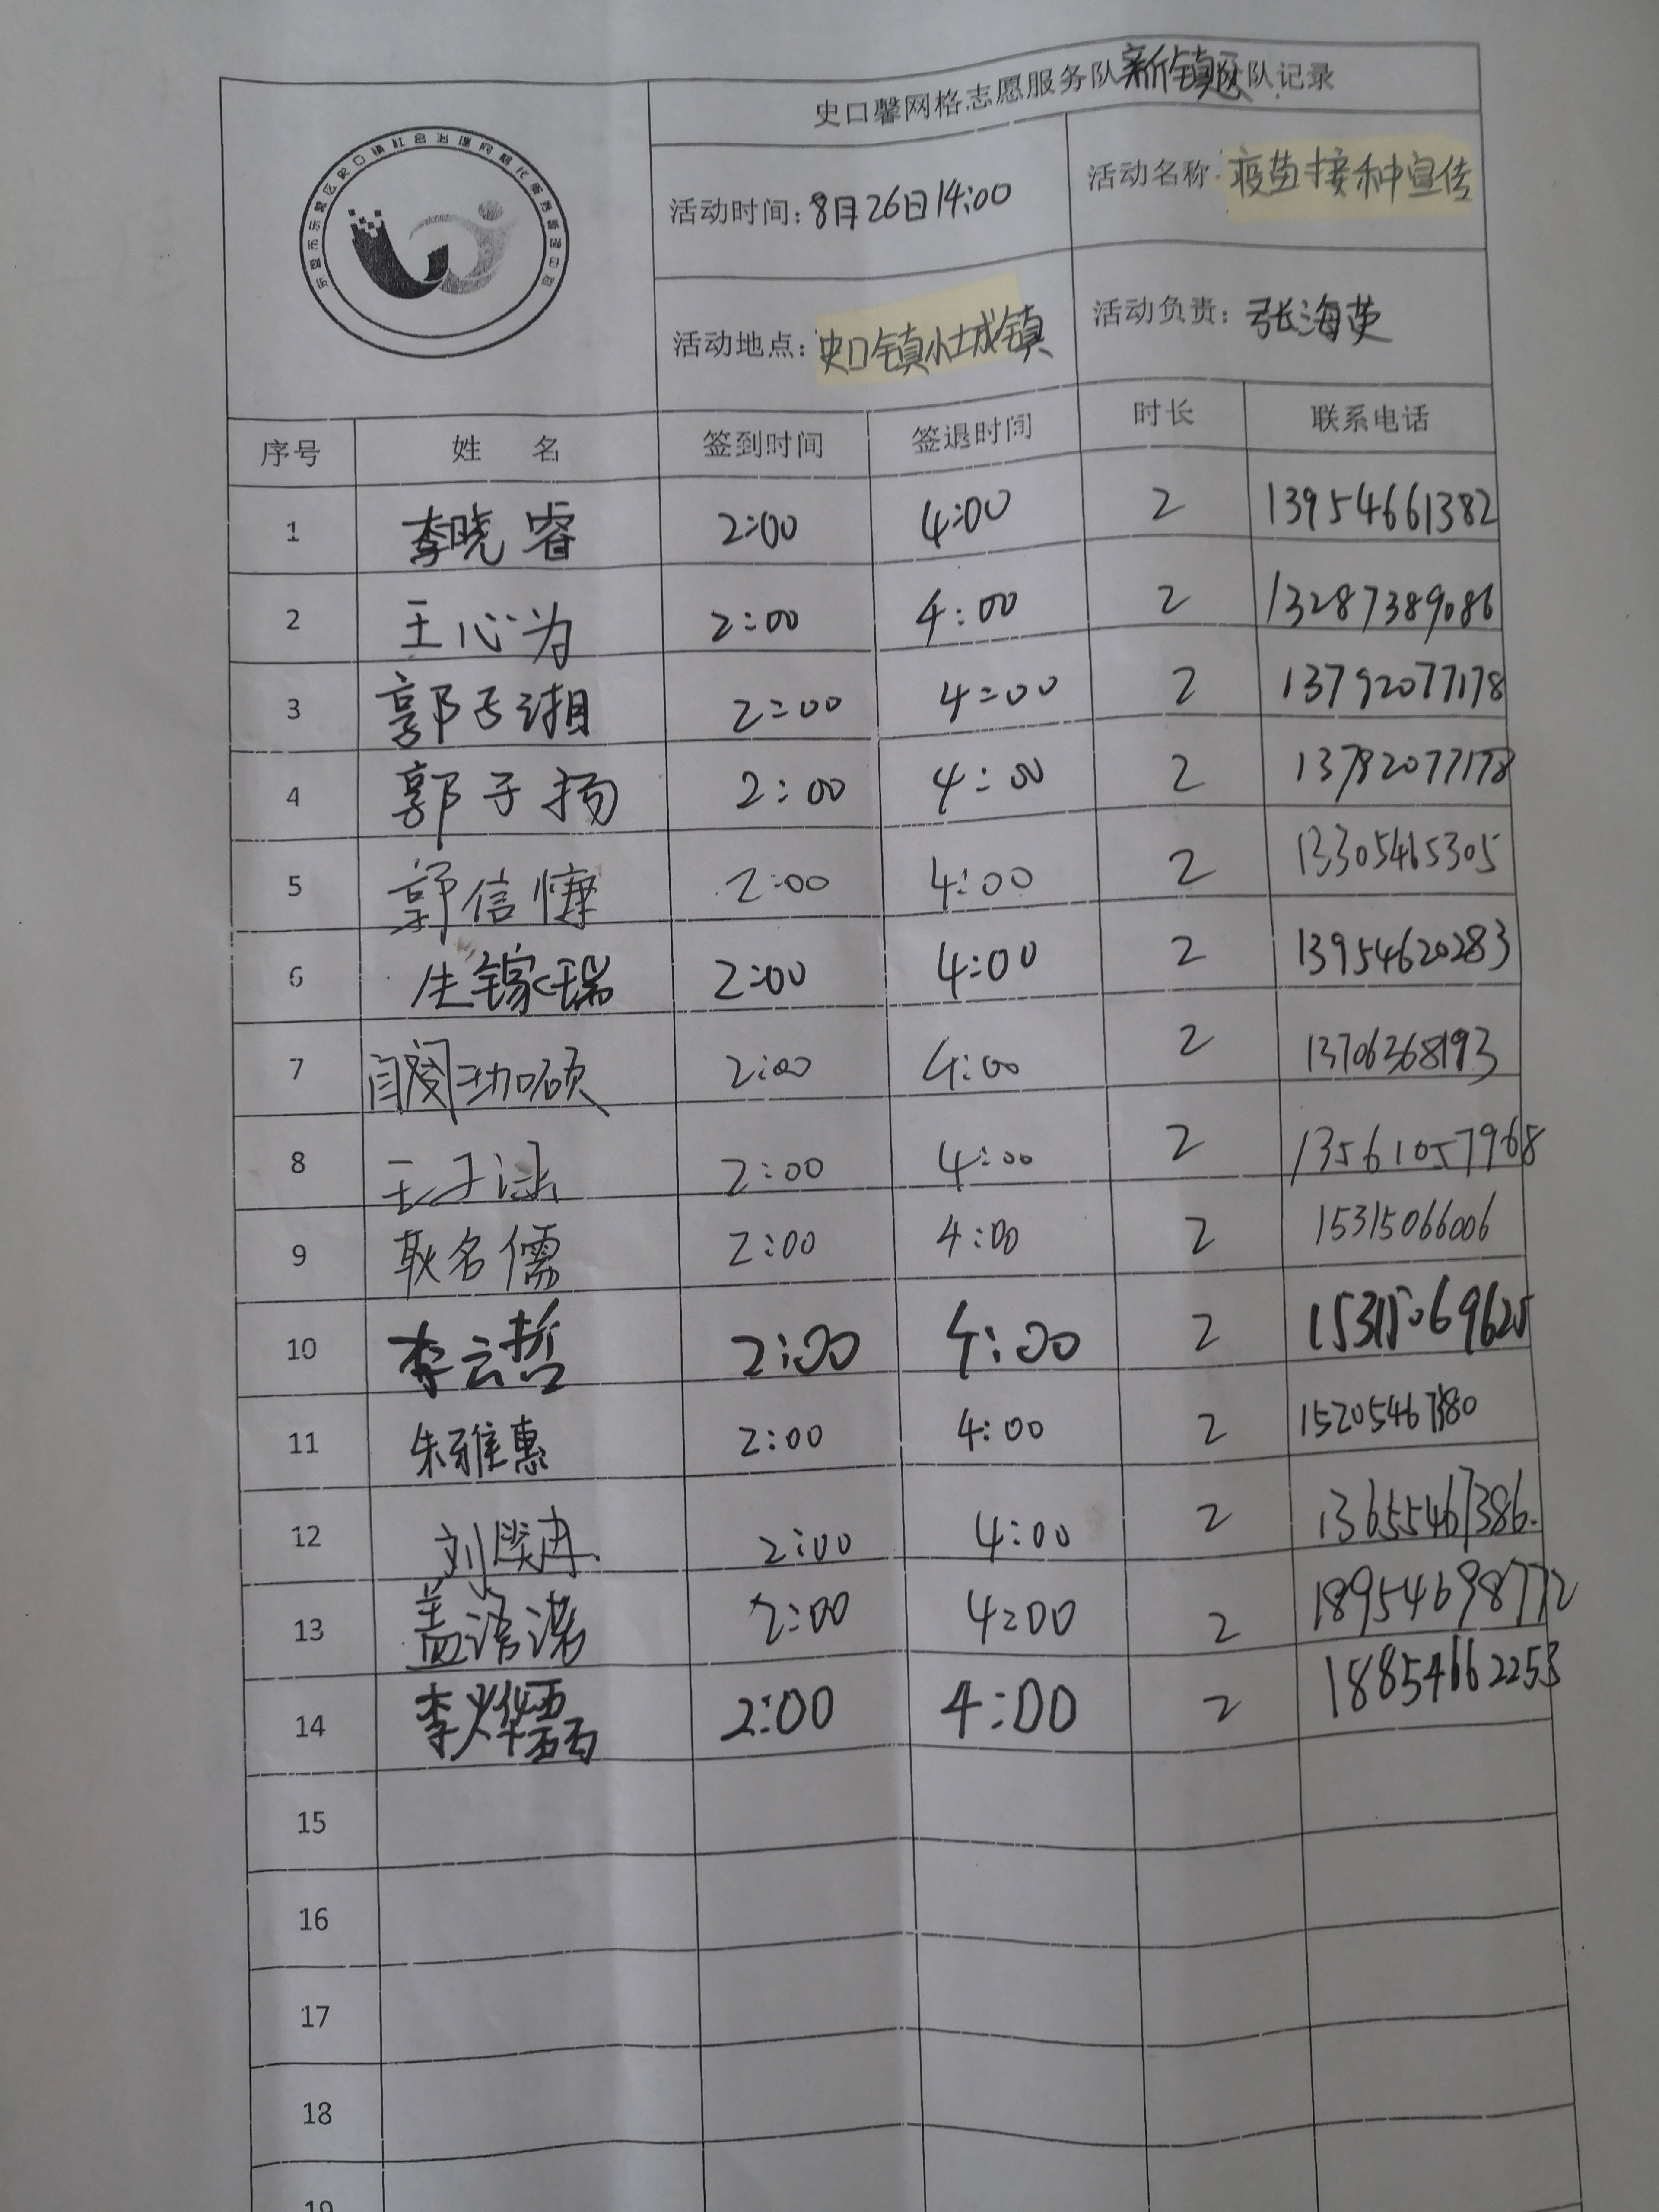 史口馨网格志愿服务队新镇区队队记录
东营市东营区史口镇社会治理网格化服务管理中心
活动时间：8月26日14:00 活动名称：疫苗接种宣传
活动地点：史口镇小城镇 活动负责：张海英
序号 姓 名 签到时间 签退时间 时长 联系电话
1 李晓睿 2:00 4:00 2 13954661382
2 王心为 2:00 4:00 2 13287389086
3 郭子湘 2:00 4:00 2 13792077178
4 郭子扬 2:00 4:00 2 13792077178
5 郭信慷 2:00 4:00 2 13305465305
6 生镓瑞 2:00 4:00 2 13954620283
7 2:00 4:00 2 13706368193
8 王子涵 2:00 4:00 2 13561057968
9 耿名儒 2:00 4:00 2 15315066006
10 李云哲 2:00 4:00 2 15315069625
11 朱雅惠 2:00 4:00 2
12 2:00 4:00 2 13655467386
13 盖语诺 2:00 4:00 2 18954698772
14 2:00 4:00 2 18854662253
15
16
17
18
19